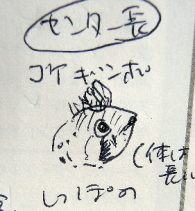 センター長
コケギンポ
(体は
長い
しっぽの